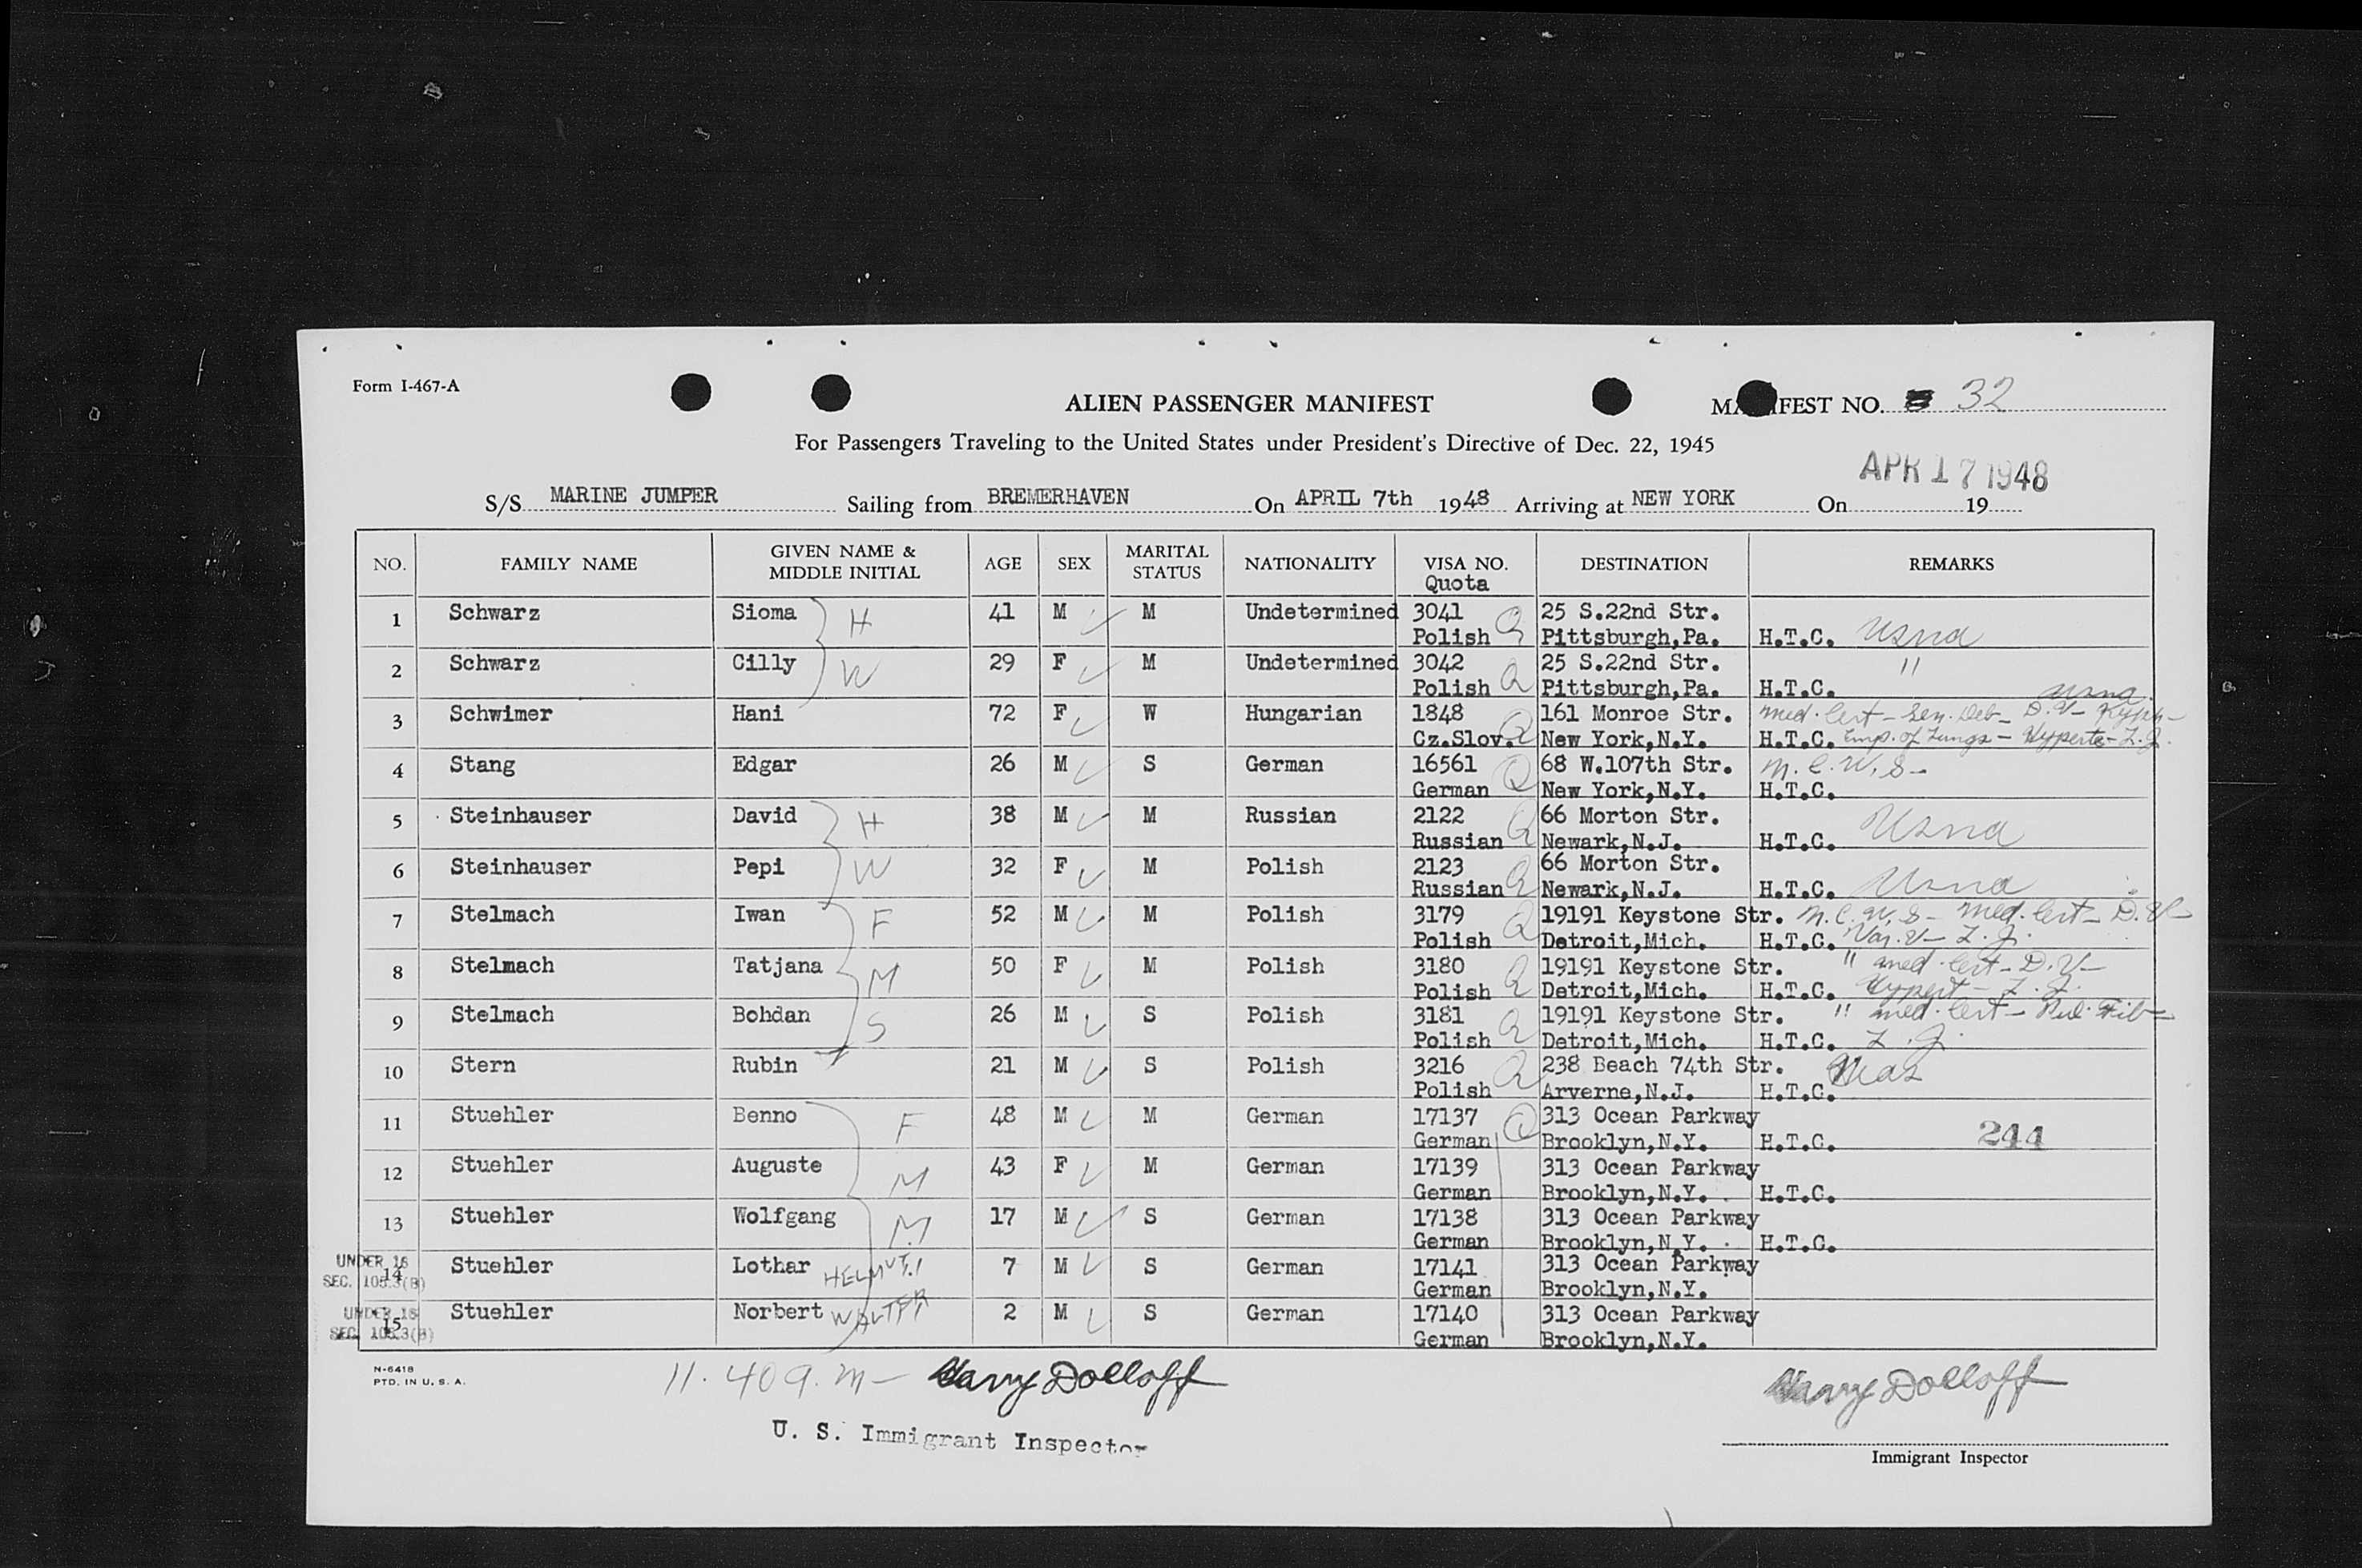 Form I-467-A
ALIEN PASSENGER MANIFEST
MANIFEST NO. 32
For Passengers Traveling to the United States under President's Directive of Dec. 22, 1945
APR 17 1948
S/S MARINE JUMPER Sailing from BREMERHAVEN On APRIL 7th 1948 Arriving at NEW YORK On 19
NO. FAMILY NAME GIVEN NAME & MIDDLE INITIAL AGE SEX MARITAL STATUS NATIONALITY VISA NO. Quota DESTINATION REMARKS
1 Schwarz Sioma H 41 M M Undetermined 3041 25 S.22nd Str.
Polish Q Pittsburgh,Pa. H.T.C. Usna
2 Schwarz Cilly W 29 F M Undetermined 3042 25 S.22nd Str. "
Polish Q Pittsburgh,Pa. H.T.C. usna
3 Schwimer Hani 72 F W Hungarian 1848 161 Monroe Str. med. Cert - Sen. Deb - D.V - Kyph -
Cz.Slov. Q New York,N.Y. H.T.C. Emp. of Lungs - Hyperte - L.J.
4 Stang Edgar 26 M S German 16561 68 W.107th Str. M.C.W.S -
German Q New York,N.Y. H.T.C.
5 Steinhauser David H 38 M M Russian 2122 66 Morton Str.
Russian Q Newark,N.J. H.T.C. Usna
6 Steinhauser Pepi W 32 F M Polish 2123 66 Morton Str.
Russian Q Newark,N.J. H.T.C. Usna
7 Stelmach Iwan F 52 M M Polish 3179 19191 Keystone Str. M.C.W.S - Med. Cert - D.V -
Polish Q Detroit,Mich. H.T.C. Var. V - L.J.
8 Stelmach Tatjana M 50 F M Polish 3180 19191 Keystone Str. " med. Cert - D.V -
Polish Q Detroit,Mich. H.T.C. Hypert - L.J.
9 Stelmach Bohdan S 26 M S Polish 3181 19191 Keystone Str. " med. Cert - Pul. Fib -
Polish Q Detroit,Mich. H.T.C. L.J.
10 Stern Rubin 21 M S Polish 3216 238 Beach 74th Str.
Polish Q Arverne,N.J. H.T.C.
11 Stuehler Benno F 48 M M German 17137 313 Ocean Parkway
German Q Brooklyn,N.Y. H.T.C. 244
12 Stuehler Auguste M 43 F M German 17139 313 Ocean Parkway
German Brooklyn,N.Y. H.T.C.
13 Stuehler Wolfgang M 17 M S German 17138 313 Ocean Parkway
German Brooklyn,N.Y. H.T.C.
UNDER 16
SEC. 105.3(B)
14 Stuehler Lothar HELMUT 7 M S German 17141 313 Ocean Parkway
German Brooklyn,N.Y.
UNDER 16
SEC. 105.3(B)
15 Stuehler Norbert WALTER 2 M S German 17140 313 Ocean Parkway
German Brooklyn,N.Y.
N-6418
PTD. IN U. S. A.
11.40 a.m - Harry Dolloff
Harry Dolloff
U. S. Immigrant Inspector
Immigrant Inspector